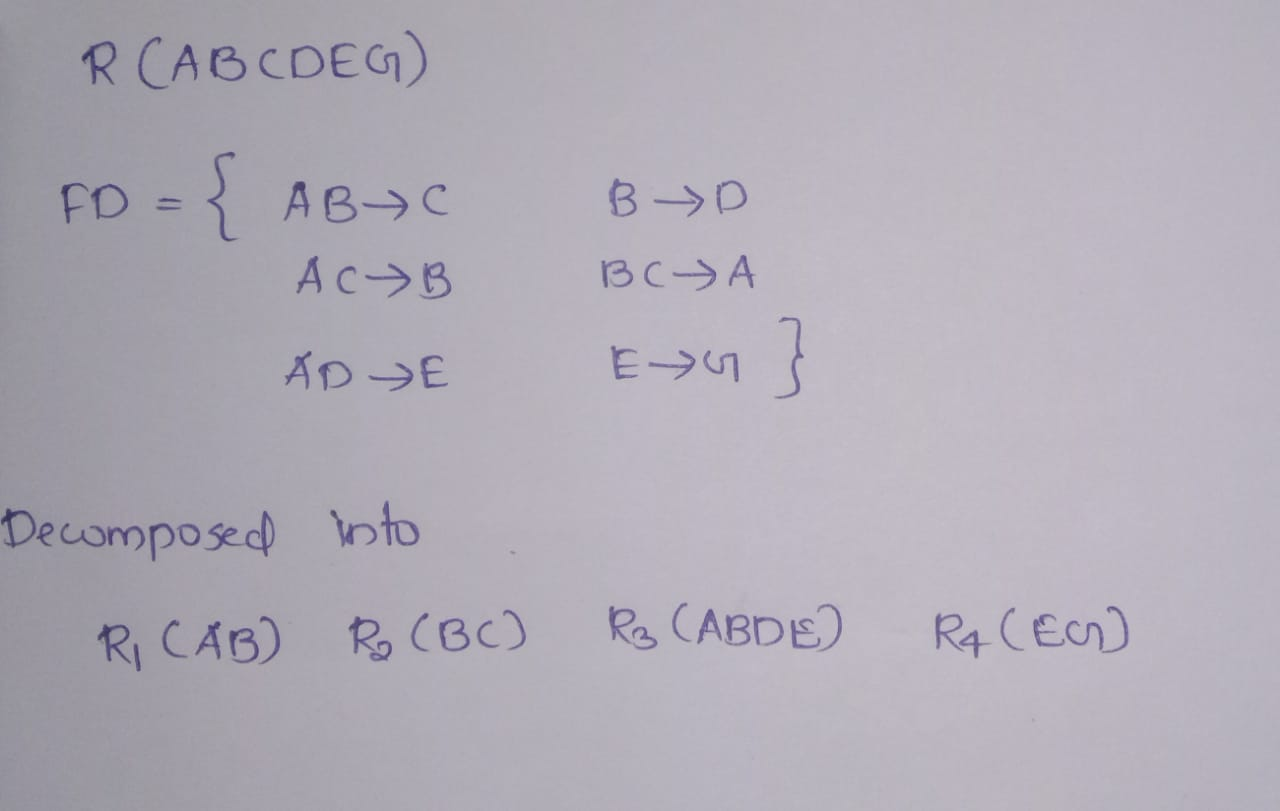 R (ABCDEG)
FD = { AB→C B→D
AC→B BC→A
AD→E E→G }
Decomposed into
R₁ (AB) R₂ (BC) R₃ (ABDE) R₄ (EG)